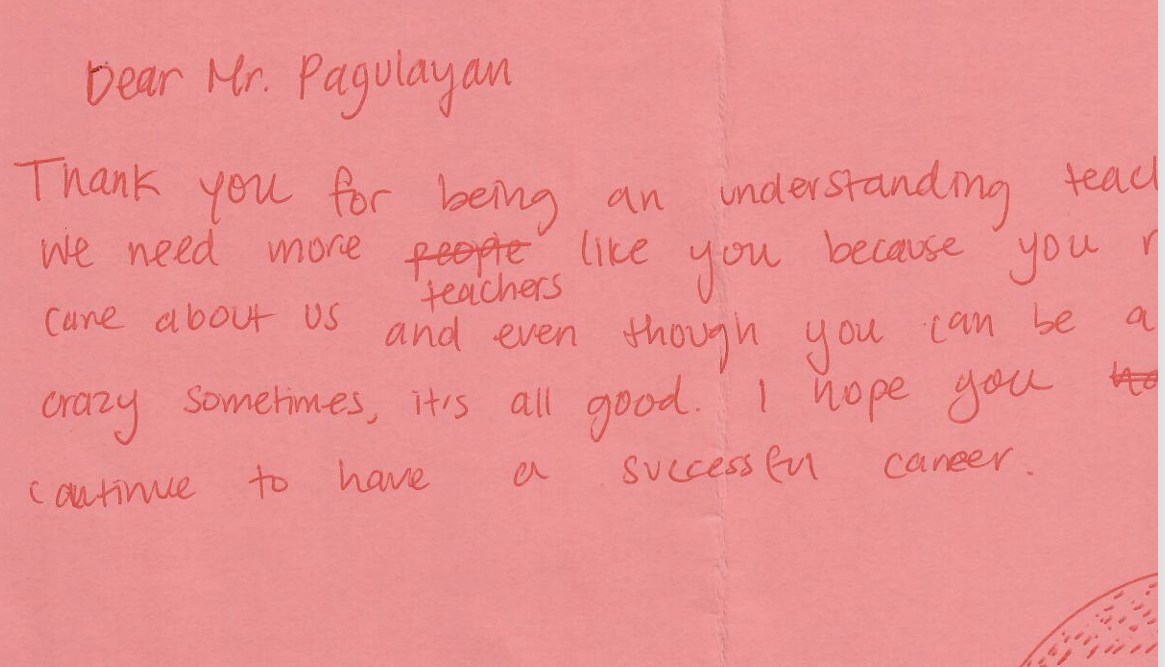 Dear Mr. Pagulayan
Thank you for being an understanding teac
We need more people like you because you r
teachers
care about us and even though you can be a
crazy sometimes, it's all good. I hope you
continue to have a successful career.